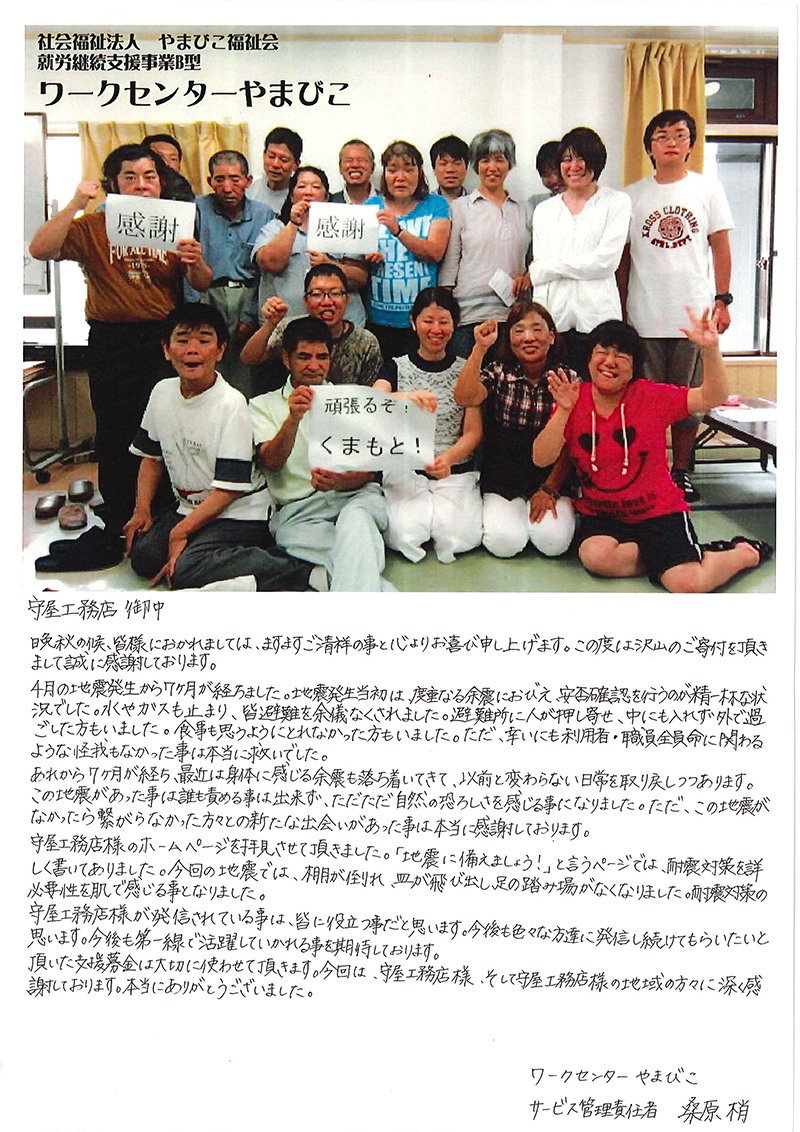 社会福祉法人　やまびこ福祉会
就労継続支援事業B型
ワークセンターやまびこ
感謝
感謝
FOR ALL MAC
1975
THE
PRESENT
TIME
KROSS CLOTHING
頑張るぞ！
くまもと！
守屋工務店 御中
晩秋の候、皆様におかれましては、ますますご清祥の事と心よりお喜び申し上げます。この度は沢山のご寄付を頂き
まして誠に感謝しております。
4月の地震発生から7ヶ月が経ちました。地震発生当初は、度重なる余震におびえ、安否確認を行うのが精一杯な状
況でした。水やガスも止まり、皆避難を余儀なくされました。避難所に人が押し寄せ、中にも入れず外で過
ごした方もいました。食事も思うようにとれなかった方もいました。ただ、幸いにも利用者・職員全員命に関わる
ような怪我もなかった事は本当に救いでした。
あれから7ヶ月が経ち、最近は身体に感じる余震も落ち着いてきて、以前と変わらない日常を取り戻しつつあります。
この地震があった事は誰も責める事は出来ず、ただただ自然の恐ろしさを感じる事になりました。ただ、この地震が
なかったら繋がらなかった方々との新たな出会いがあった事は本当に感謝しております。
守屋工務店様のホームページを拝見させて頂きました。「地震に備えましょう！」と言うページでは、耐震対策を詳
しく書いてありました。今回の地震では、棚が倒れ、皿が飛び出し足の踏み場がなくなりました。耐震対策の
必要性を肌で感じる事となりました。
守屋工務店様が発信されている事は、皆に役立つ事だと思います。今後も色々な方達に発信し続けてもらいたいと
思います。今後も第一線で活躍していかれる事を期待しております。
頂いた支援募金は大切に使わせて頂きます。今回は、守屋工務店様、そして守屋工務店様の地域の方々に深く感
謝しております。本当にありがとうございました。
ワークセンター やまびこ
サービス管理責任者　桑原 梢